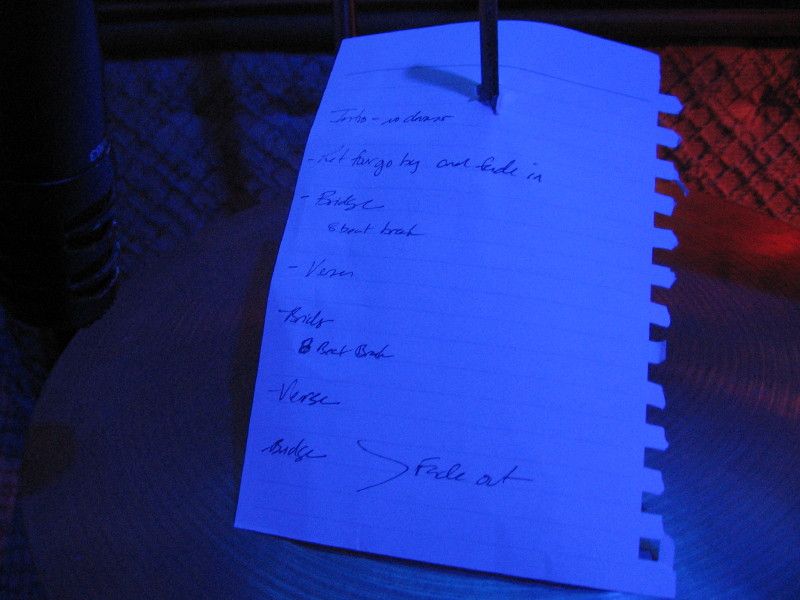 Intro - no drums
- Let four go by and fade in
- Bridge
8 Beat break
- Verse
- Bridge
8 Beat Break
- Verse
Bridge > Fade out